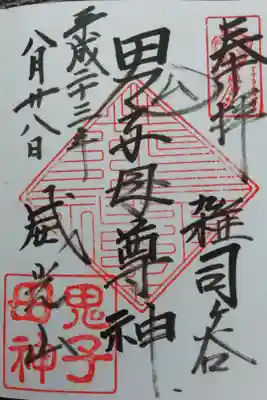 奉拝
雑司ヶ谷
鬼子母尊神
平成二十三年
八月廿八日
威光山
鬼子
母神